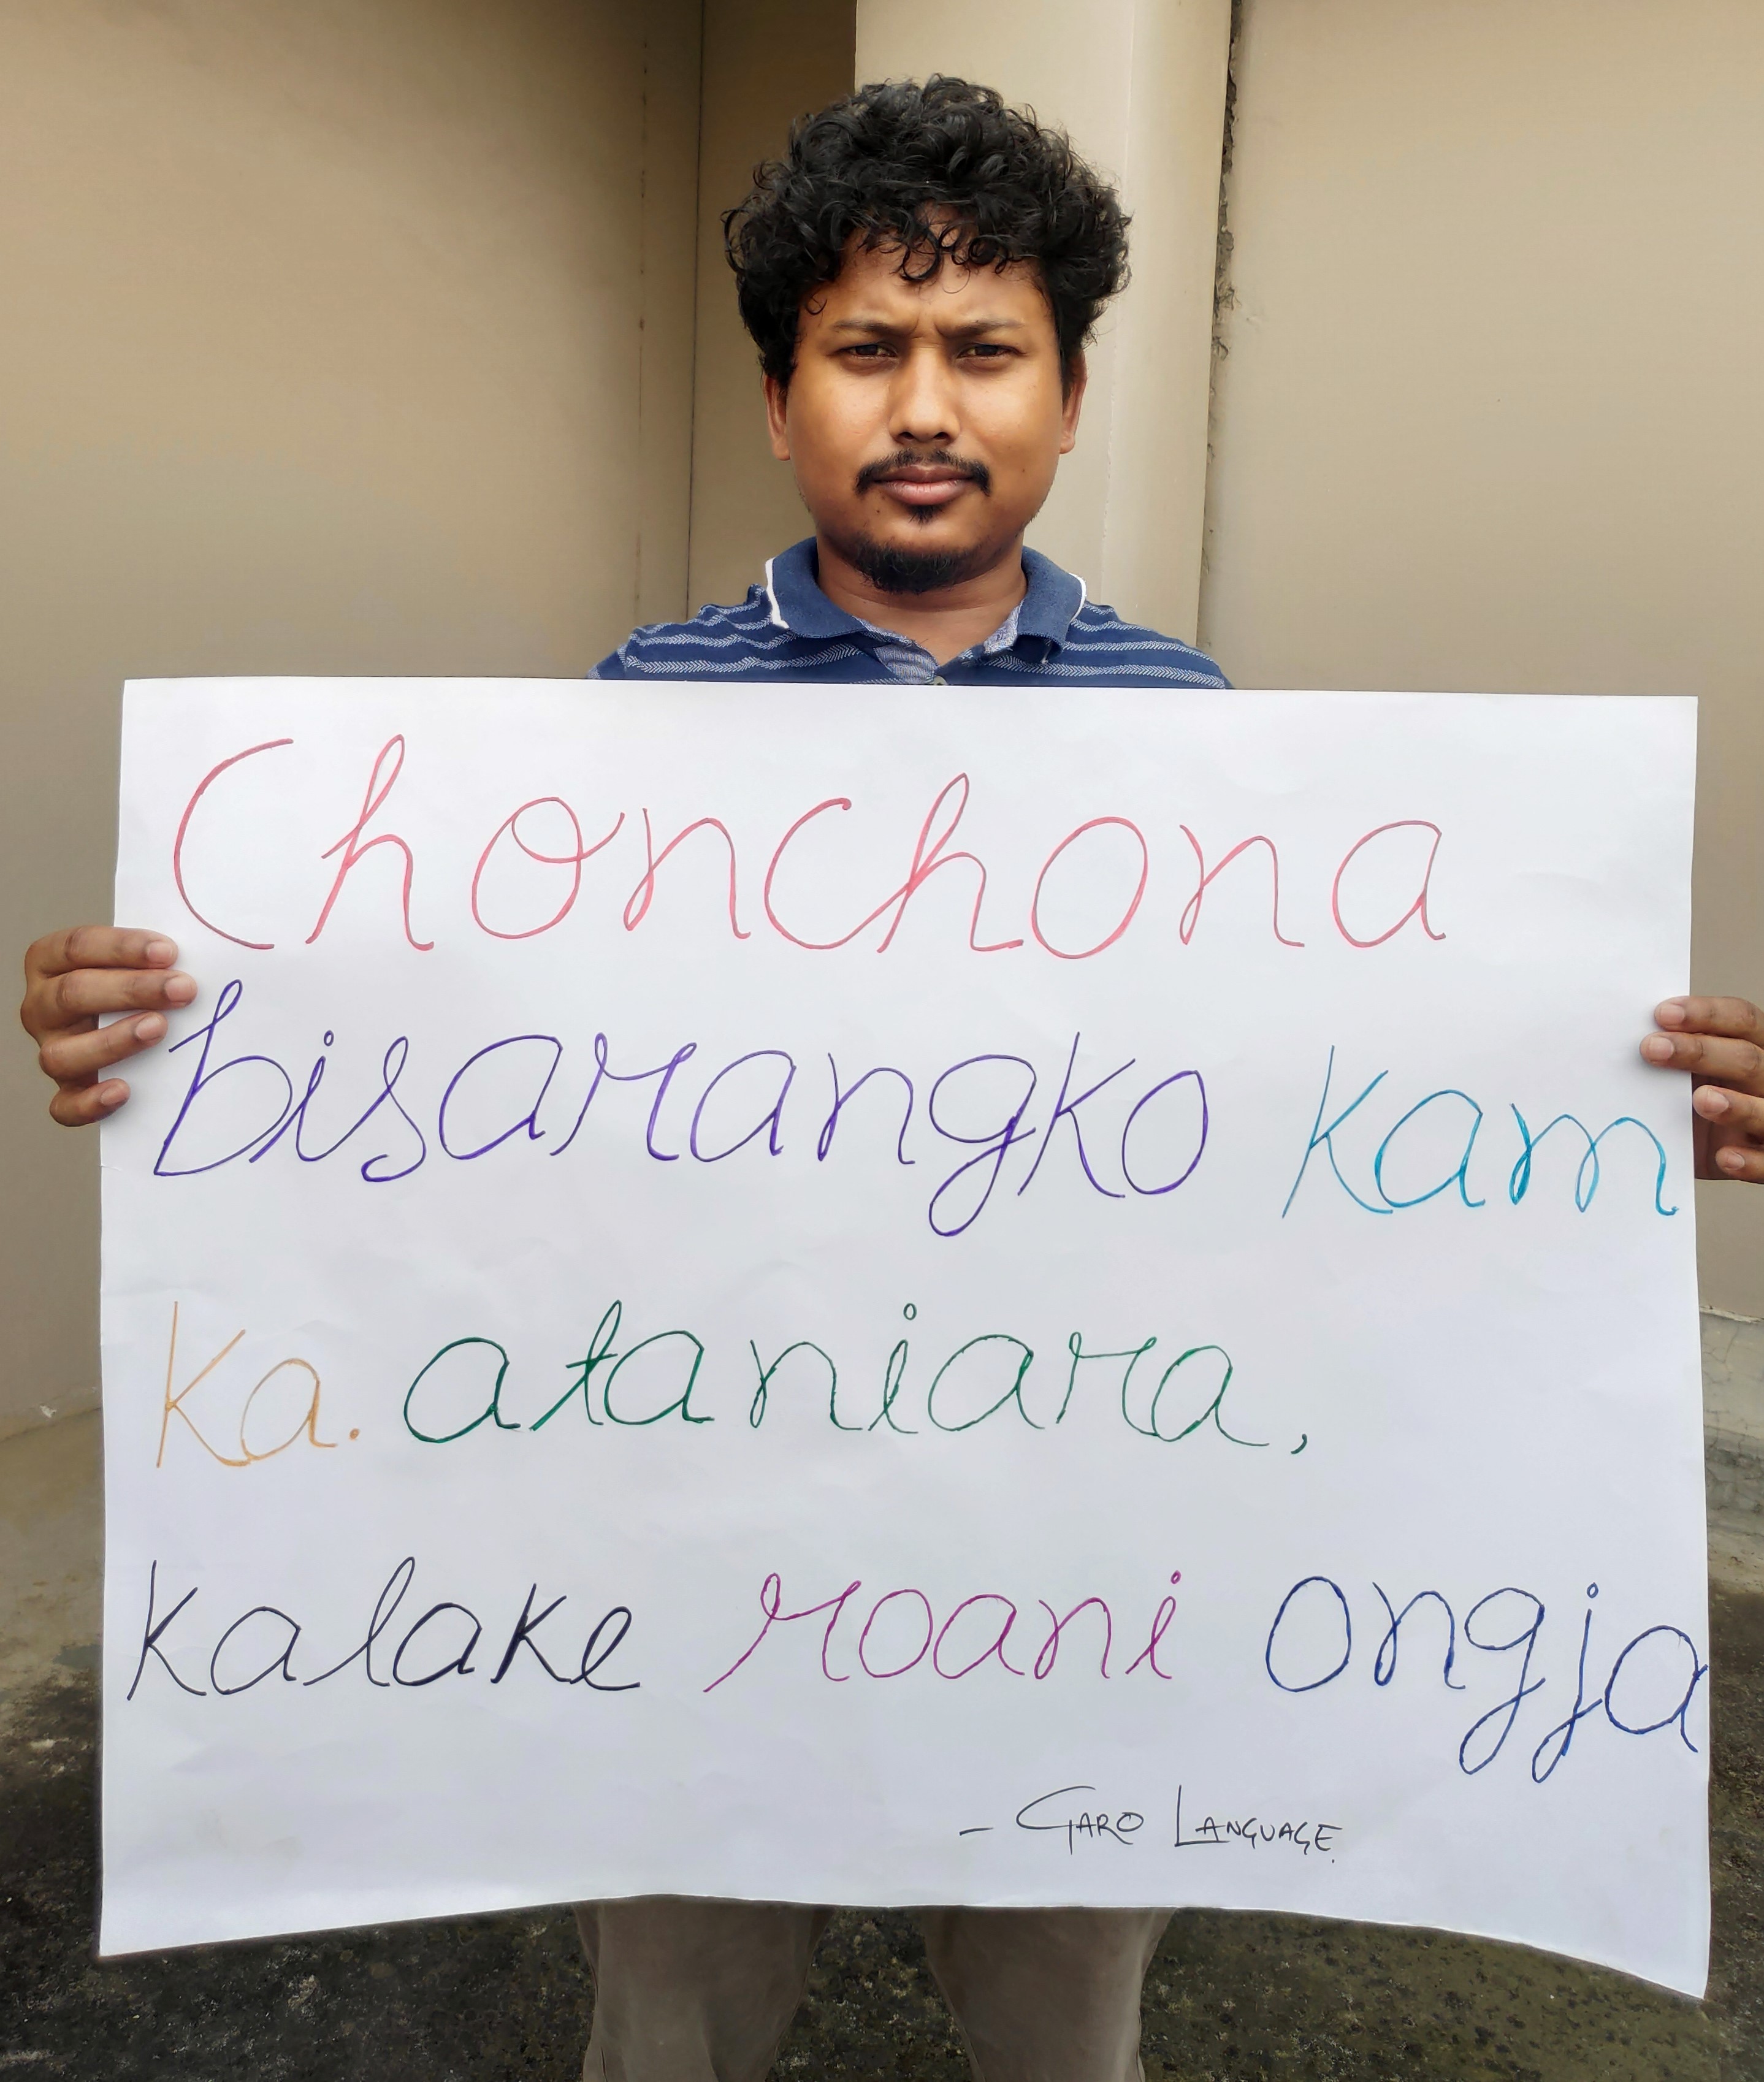 Chonchona
bisarangko kam
ka. ataniara,
kalake roani ongja
- GARO LANGUAGE.